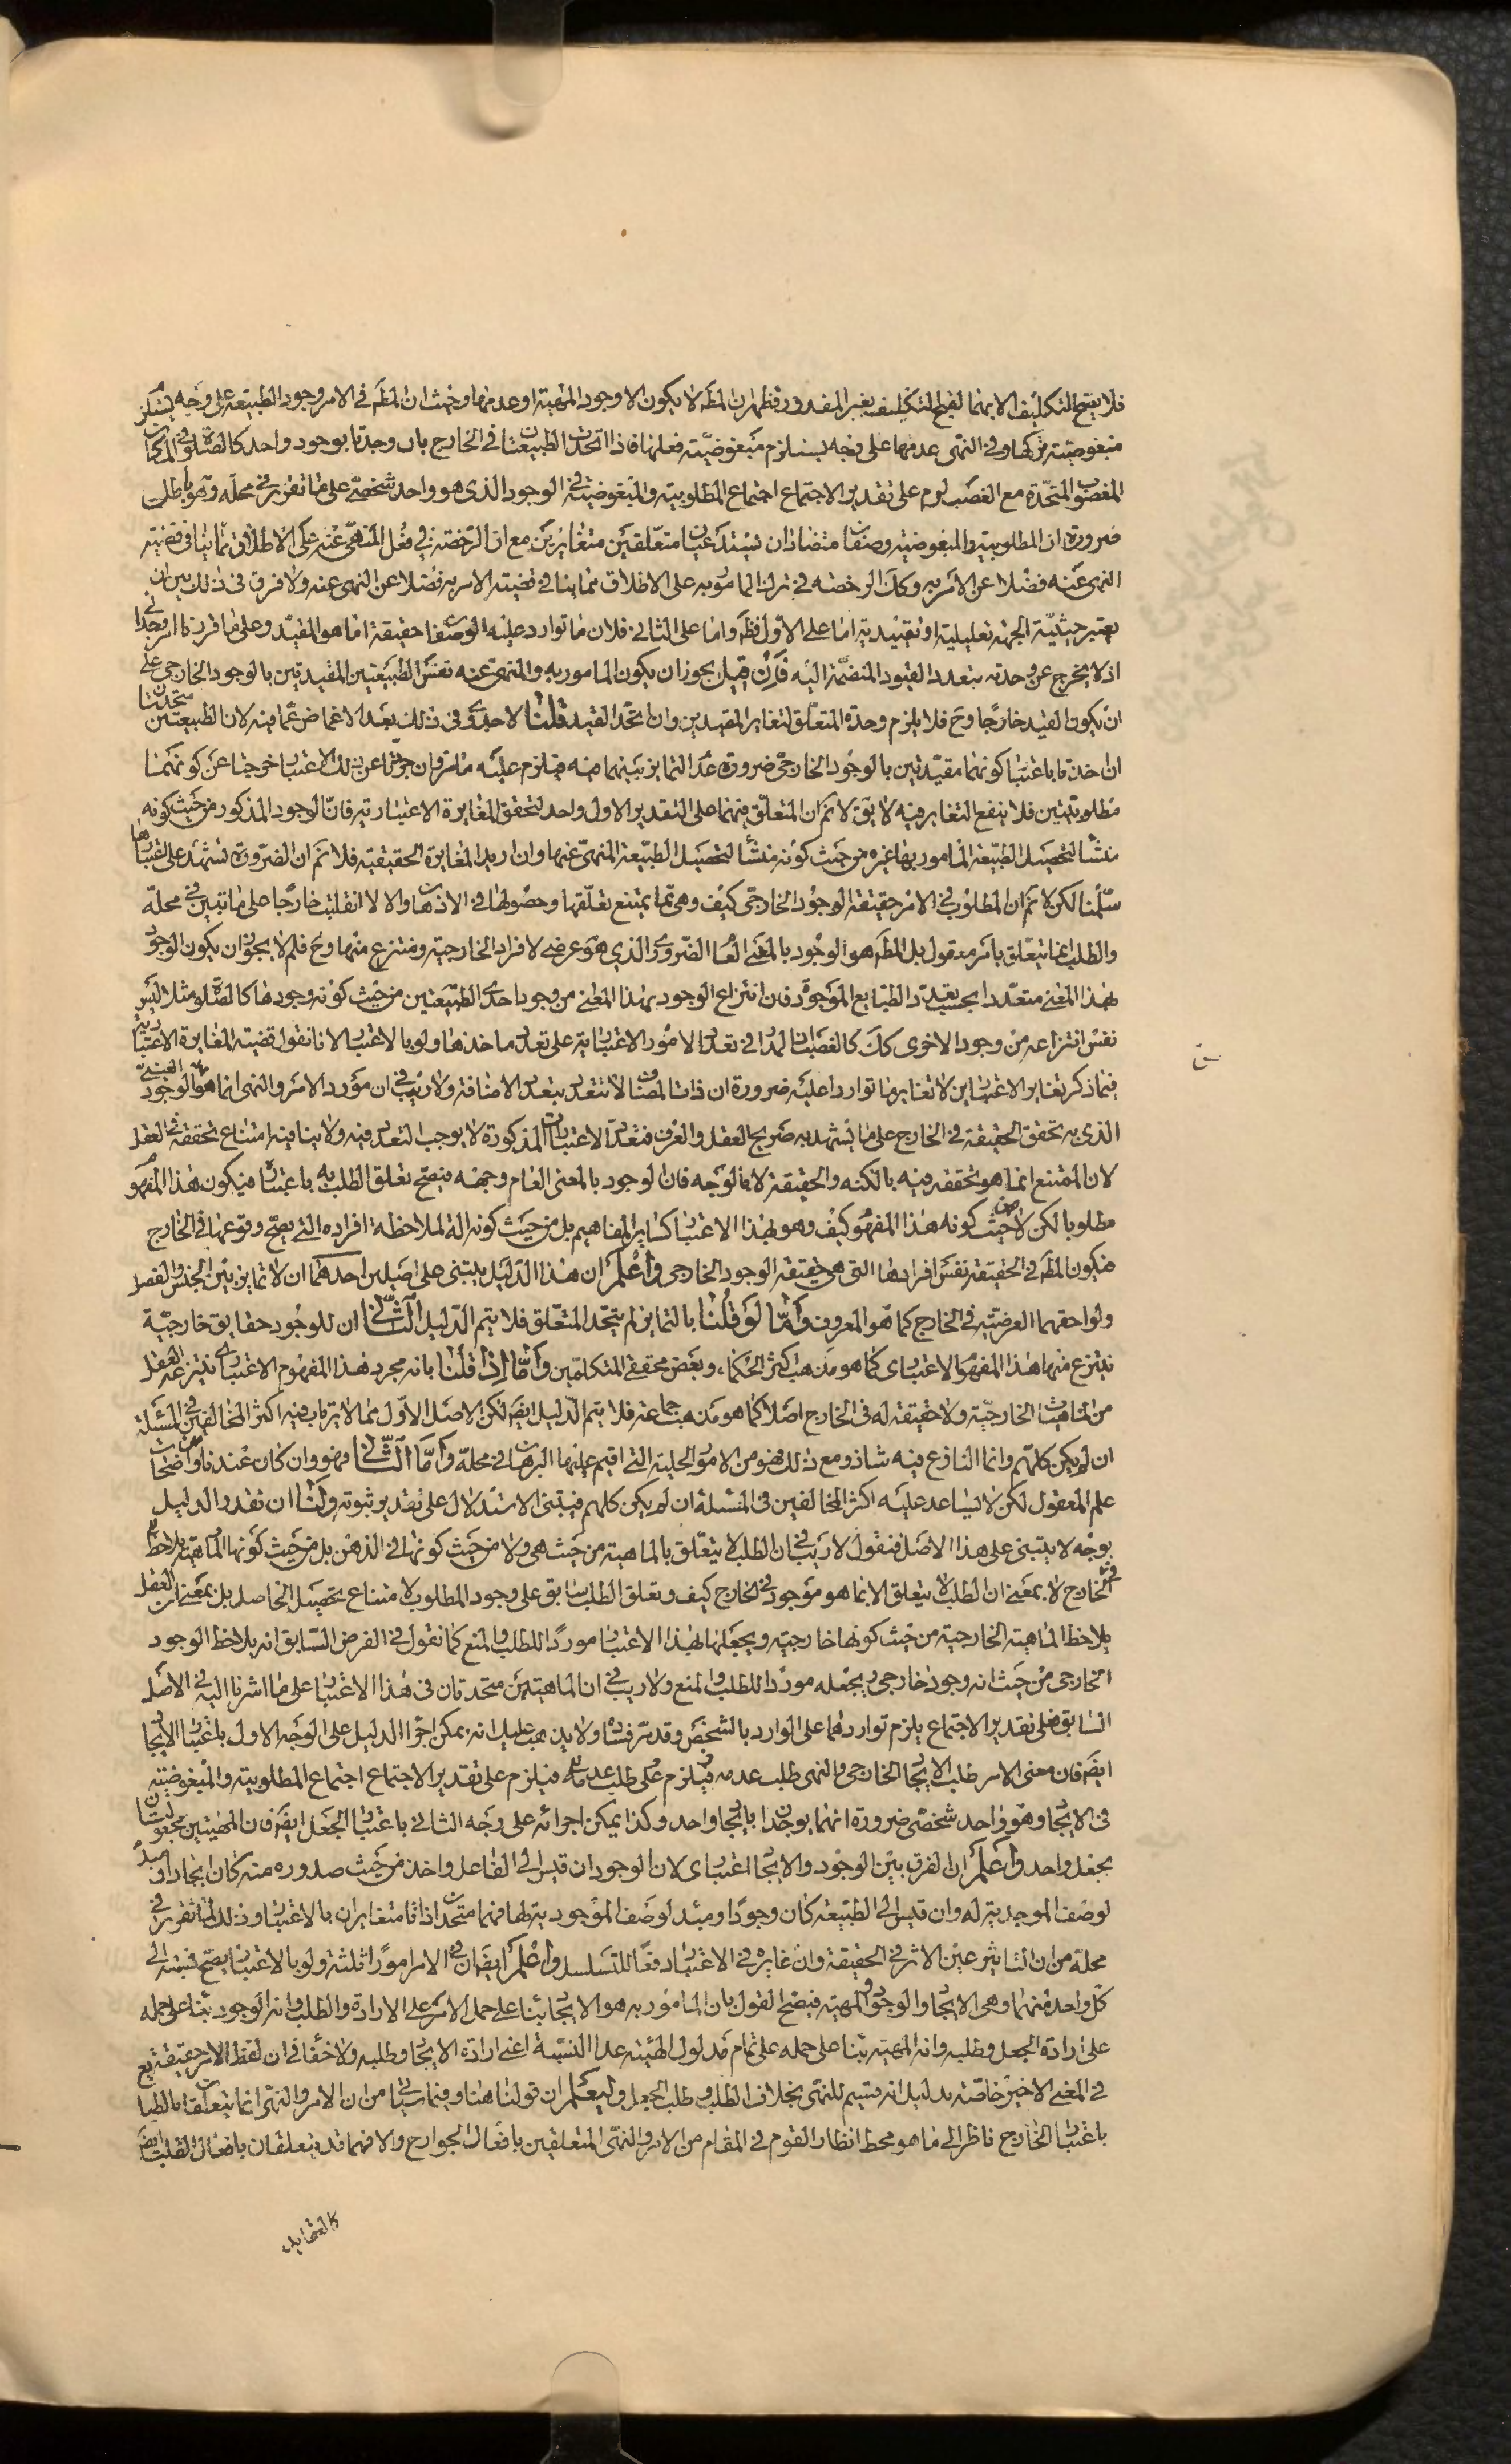 فلا يصح التكليف الا بهما لقبح التكليف بغير المقدور فظهر ان المطـ لا يكون الا وجود المهية او عدمها وحيث ان المطـ فى الامر وجود الطبيعة على وجه يستلزم
مبغوضية تركها وفى النهى عدمها على وجه يستلزم مبغوضية فعلها فاذا اتحدت الطبيعتان فى الخارج بان وجدتا بوجود واحد كالصلوة فى المكان
المغصوب المتحدة مع الغصب لزم على تقدير الاجتماع اجتماع المطلوبية والمبغوضية فى الوجود الذى هو واحد شخصى على ما تقرر فى محله وهو باطل
ضرورة ان المطلوبية والمبغوضية وصفان متضادان يستدعيان متعلقين متغايرين مع ان الرخصة فى فعل المنهى عنه على الاطلاق مما ينافى قضية
النهى عنه فضلا عن الامر به وكك الرخصة فى ترك المامور به على الاطلاق مما ينافى قضية الامر به فضلا عن النهى عنه ولا فرق فى ذلك بين ان
يعتبر حيثية الجهة تعليلية او تقييدية اما على الاول فظـ واما على الثانى فلان ما توارد عليه الوصفان حقيقة انما هو المقيد وعلى ما قررنا امر وحدانى
اذ لا يخرج عن وحدته بتعدد القيود المنضمة اليه فان قيل يجوز ان يكون المامور به والمنهى عنه نفس الطبيعتين المقيدتين بالوجود الخارجى على
ان يكون القيد خارجا وح فلا يلزم وحدة المتعلق لتغاير المقيدين وان اتحد القيد قلنا لا جدوى فى ذلك بعد الاغماض عما فيه لان الطبيعتين متحدتان
ان اخذتا باعتبار كونهما مقيدتين بالوجود الخارجى ضرورة عدم التمايز بينهما فيه فيلزم عليه ما مر وان جردتا عن ذلك الاعتبار خرجتا عن كونهما
مطلوبتين فلا ينفع التغاير فيه لا يق لا نم ان المتعلق فيهما على التقدير الاول واحد لتحقق المغايرة الاعتبارية فان الوجود المذكور من حيث كونه
منشأ لتحصيل الطبيعة المامور بها غيره من حيث كونه منشأ لتحصيل الطبيعة المنهى عنها وان اريد المغايرة الحقيقية فلا نم ان الضرورة تشهد على اعتبارها
سلمنا لكن لا نم ان المطلوب فى الامر حقيقة الوجود الخارجى كيف وهى مما يمتنع تعلقها وحصولها فى الاذهان والا لانقلبت خارجا على ما تبين فى محله
والطلب انما يتعلق بامر معقول بل المطـ هو الوجود بالمعنى العام الضرورى والذى هو عرضى لافراده الخارجية ومنتزع منها وح فلم لا يجوز ان يكون الوجود
بهذا المعنى متعددا بحسب تعدد الطبايع الموجودة فان انتزاع الوجود بهذا المعنى من وجود احدى الطبيعتين من حيث كونه وجودها كالصلوة مثلا ليس
نفس انتزاعه من وجود الاخرى كك كالغصب لانا نقول قضية المغايرة الاعتبارية
فيما ذكر تغاير الاعتبارين لا تغاير ما تواردا عليه ضرورة ان ذات المضاف لا تتعدد بتعدد الاضافة ولا ريب فى ان مورد الامر والنهى انما هو الوجود العينى
الذى به تحقق الحقيقة فى الخارج على ما يشهد به صريح العقل والعرف فتعدد الاعتبارات المذكورة لا يوجب التعدد فيه ولا ينافيه امتناع تحققه فى العقل
لان الممتنع انما هو تحققه فيه بالكنه والحقيقة لا بالوجه فان الوجود بالمعنى العام وجهه فيصح تعلق الطلب به باعتباره فيكون هذا المفهوم
مطلوبا لكن لا من حيث كونه هذا المفهوم كيف وهو بهذا الاعتبار كساير المفاهيم بل من حيث كونه الة لملاحظة افراده التى يصح وقوعها فى الخارج
فيكون المطـ فى الحقيقة نفس افرادها التى هى حقيقة الوجود الخارجى واعلم ان هذا الدليل يبتنى على اصلين احدهما ان لا تمايز بين الجنس والفصل
ولواحقهما العرضية فى الخارج كما هو المعروف واما لو قلنا بالتمايز لم يتحد المتعلق فلا يتم الدليل الثانى ان للوجود حقايق خارجية
ينتزع منها هذا المفهوم الاعتبارى كما هو مذهب اكثر الحكماء وبعض محققى المتكلمين واما اذا قلنا بانه مجرد هذا المفهوم الاعتبارى ينتزعه العقل
من الماهيات الخارجية ولا حقيقة له فى الخارج اصلا كما هو مذهب جماعة فلا يتم الدليل ايضا لكن الاصل الاول مما لا يرتاب فيه اكثر المخالفين فى المسئلة
ان لم يكن كلهم وانما النازع فيه شاذ ومع ذلك فهو من الامور الجلية التى اقيم عليها البرهان فى محله واما الثانى فهو وان كان عندنا من واضحات
علم المعقول لكن لا يساعد عليه اكثر المخالفين فى المسئلة ان لم يكن كلهم فيبتنى الاستدلال على تقدير ثبوته ولنا ان نقرر الدليل
بوجه لا يبتنى على هذا الاصل فنقول لا ريب فى ان الطلب لا يتعلق بالماهية من حيث هى ولا من حيث كونها فى الذهن بل من حيث كونها الماهية بلاحظ
فى الخارج لا بمعنى ان الطلب لا يتعلق الا بما هو موجود فى الخارج كيف وتعلق الطلب سابق على وجود المطلوب لامتناع تحصيل الحاصل بل بمعنى ان العقل
يلاحظ الماهية الخارجية من حيث كونها خارجية ويجعلها بهذا الاعتبار موردا للطلب والمنع كما نقول فى الفرض السابق انه يلاحظ الوجود
الخارجى من حيث انه وجود خارجى ويجعله موردا للطلب والمنع ولا ريب فى ان الماهيتين متحدتان فى هذا الاعتبار على ما اشرنا اليه فى الاصل
السابق فعلى تقدير الاجتماع يلزم تواردهما على الوارد بالشخص وقد مر فساده ولا يذهب عليك انه يمكن اجراء الدليل على الوجه الاول باعتبار الايجاد
ايضا فان معنى الامر طلب الايجاد الخارجى والنهى طلب عدمه فيلزم على تقدير الاجتماع اجتماع المطلوبية والمبغوضية
فى الايجاد وهو واحد شخصى ضرورة انهما يوجدان بايجاد واحد وكذا يمكن اجرائه على وجه الثانى باعتبار الجعل ايضا فان المهيتين مجعولتان
بجعل واحد واعلم ان الفرق بين الوجود والايجاد اعتبارى لان الوجود ان قيس الى الفاعل واخذ من حيث صدوره منه كان ايجادا ومبدء
لوصف الموجدية له وان قيس الى الطبيعة كان وجودا ومبدء لوصف الموجودية لها فهما متحدان ذاتا متغايران بالاعتبار وذلك لما تقرر فى
محله من ان التاثير عين الاثر فى الحقيقة وان غايره فى الاعتبار دفعا للتسلسل واعلم ايضا ان فى الامر امورا ثلثة ولو بالاعتبار يصح نسبته الى
كل واحد منها وهى الايجاد والوجود والمهية فيصح القول بان المامور به هو الايجاد بناء على حمل الامر على الارادة والطلب وانه الوجود بناء على حمله
على ارادة الجعل وطلبه وانه المهية بناء على حمله على تمام مدلول الهيئة عدا النسبة اعنى ارادة الايجاد وطلبه ولا خفاء فى ان لفظ الامر حقيقة
فى المعنى الاخير خاصة بدليل انه قسيم للنهى بخلاف الطلب وطلب الجعل وليعلم ان قولنا هنا وفيما سياتى من ان الامر والنهى انما يتعلقان بالطبايع
باعتبار الخارج ناظر الى ما هو محط انظار القوم فى المقام من الامر والنهى المتعلقين بافعال الجوارح والا فهما قد يتعلقان بافعال القلب ايضا
كالعقايد